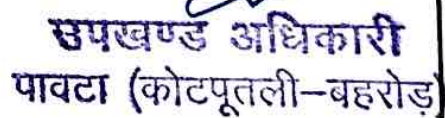 उपखण्ड अधिकारी
पावटा (कोटपूतली–बहरोड़)